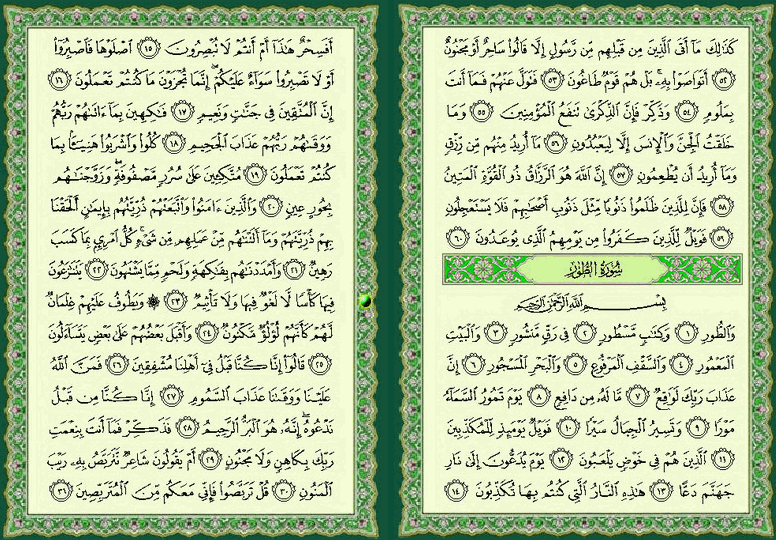 كَذَٰلِكَ مَآ أَتَى ٱلَّذِينَ مِن قَبْلِهِم مِّن رَّسُولٍ إِلَّا قَالُوا۟ سَاحِرٌ أَوْ مَجْنُونٌ
٥٢ أَتَوَاصَوْا۟ بِهِۦ ۚ بَلْ هُمْ قَوْمٌ طَاغُونَ ٥٣ فَتَوَلَّ عَنْهُمْ فَمَآ أَنتَ
بِمَلُومٍ ٥٤ وَذَكِّرْ فَإِنَّ ٱلذِّكْرَىٰ تَنفَعُ ٱلْمُؤْمِنِينَ ٥٥ وَمَا
خَلَقْتُ ٱلْجِنَّ وَٱلْإِنسَ إِلَّا لِيَعْبُدُونِ ٥٦ مَآ أُرِيدُ مِنْهُم مِّن رِّزْقٍ
وَمَآ أُرِيدُ أَن يُطْعِمُونِ ٥٧ إِنَّ ٱللَّهَ هُوَ ٱلرَّزَّاقُ ذُو ٱلْقُوَّةِ ٱلْمَتِينُ
٥٨ فَإِنَّ لِلَّذِينَ ظَلَمُوا۟ ذَنُوبًا مِّثْلَ ذَنُوبِ أَصْحَٰبِهِمْ فَلَا يَسْتَعْجِلُونِ
٥٩ فَوَيْلٌ لِّلَّذِينَ كَفَرُوا۟ مِن يَوْمِهِمُ ٱلَّذِى يُوعَدُونَ ٦٠
سُورَةُ الطُّورِ
بِسْمِ ٱللَّهِ ٱلرَّحْمَٰنِ ٱلرَّحِيمِ
وَٱلطُّورِ ١ وَكِتَٰبٍ مَّسْطُورٍ ٢ فِى رَقٍّ مَّنشُورٍ ٣ وَٱلْبَيْتِ
ٱلْمَعْمُورِ ٤ وَٱلسَّقْفِ ٱلْمَرْفُوعِ ٥ وَٱلْبَحْرِ ٱلْمَسْجُورِ ٦ إِنَّ
عَذَابَ رَبِّكَ لَوَٰقِعٌ ٧ مَّا لَهُۥ مِن دَافِعٍ ٨ يَوْمَ تَمُورُ ٱلسَّمَآءُ
مَوْرًا ٩ وَتَسِيرُ ٱلْجِبَالُ سَيْرًا ١٠ فَوَيْلٌ يَوْمَئِذٍ لِّلْمُكَذِّبِينَ
١١ ٱلَّذِينَ هُمْ فِى خَوْضٍ يَلْعَبُونَ ١٢ يَوْمَ يُدَعُّونَ إِلَىٰ نَارِ
جَهَنَّمَ دَعًّا ١٣ هَٰذِهِ ٱلنَّارُ ٱلَّتِى كُنتُم بِهَا تُكَذِّبُونَ ١٤
أَفَسِحْرٌ هَٰذَآ أَمْ أَنتُمْ لَا تُبْصِرُونَ ١٥ ٱصْلَوْهَا فَٱصْبِرُوٓا۟
أَوْ لَا تَصْبِرُوا۟ سَوَآءٌ عَلَيْكُمْ ۖ إِنَّمَا تُجْزَوْنَ مَا كُنتُمْ تَعْمَلُونَ ١٦
إِنَّ ٱلْمُتَّقِينَ فِى جَنَّٰتٍ وَنَعِيمٍ ١٧ فَٰكِهِينَ بِمَآ ءَاتَىٰهُمْ رَبُّهُمْ
وَوَقَىٰهُمْ رَبُّهُمْ عَذَابَ ٱلْجَحِيمِ ١٨ كُلُوا۟ وَٱشْرَبُوا۟ هَنِيٓـًٔۢا بِمَا
كُنتُمْ تَعْمَلُونَ ١٩ مُتَّكِـِٔينَ عَلَىٰ سُرُرٍ مَّصْفُوفَةٍ ۖ وَزَوَّجْنَٰهُم
بِحُورٍ عِينٍ ٢٠ وَٱلَّذِينَ ءَامَنُوا۟ وَٱتَّبَعَتْهُمْ ذُرِّيَّتُهُم بِإِيمَٰنٍ أَلْحَقْنَا
بِهِمْ ذُرِّيَّتَهُمْ وَمَآ أَلَتْنَٰهُم مِّنْ عَمَلِهِم مِّن شَىْءٍ ۚ كُلُّ ٱمْرِئٍۭ بِمَا كَسَبَ
رَهِينٌ ٢١ وَأَمْدَدْنَٰهُم بِفَٰكِهَةٍ وَلَحْمٍ مِّمَّا يَشْتَهُونَ ٢٢ يَتَنَٰزَعُونَ
فِيهَا كَأْسًا لَّا لَغْوٌ فِيهَا وَلَا تَأْثِيمٌ ٢٣ ۞ وَيَطُوفُ عَلَيْهِمْ غِلْمَانٌ
لَّهُمْ كَأَنَّهُمْ لُؤْلُؤٌ مَّكْنُونٌ ٢٤ وَأَقْبَلَ بَعْضُهُمْ عَلَىٰ بَعْضٍ يَتَسَآءَلُونَ
٢٥ قَالُوٓا۟ إِنَّا كُنَّا قَبْلُ فِىٓ أَهْلِنَا مُشْفِقِينَ ٢٦ فَمَنَّ ٱللَّهُ
عَلَيْنَا وَوَقَىٰنَا عَذَابَ ٱلسَّمُومِ ٢٧ إِنَّا كُنَّا مِن قَبْلُ
نَدْعُوهُ ۖ إِنَّهُۥ هُوَ ٱلْبَرُّ ٱلرَّحِيمُ ٢٨ فَذَكِّرْ فَمَآ أَنتَ بِنِعْمَتِ
رَبِّكَ بِكَاهِنٍ وَلَا مَجْنُونٍ ٢٩ أَمْ يَقُولُونَ شَاعِرٌ نَّتَرَبَّصُ بِهِۦ رَيْبَ
ٱلْمَنُونِ ٣٠ قُلْ تَرَبَّصُوا۟ فَإِنِّى مَعَكُم مِّنَ ٱلْمُتَرَبِّصِينَ ٣١